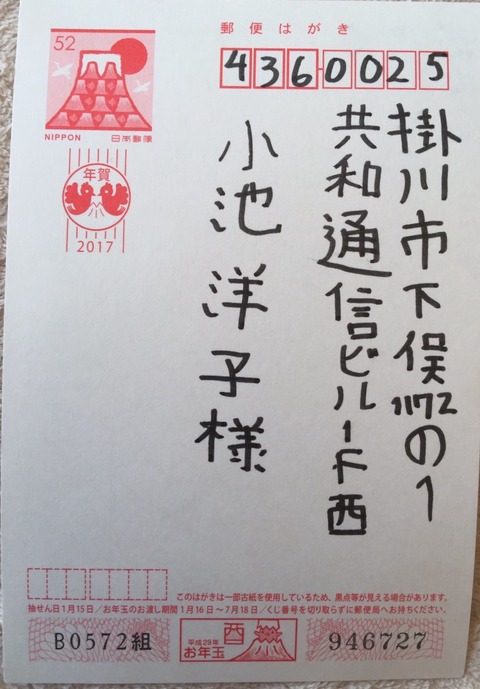 郵便はがき
4360025
52
NIPPON 日本郵便
年賀
2017
掛川市下俣1172の1
共和通信ビル1F西
小池洋子様
このはがきは一部古紙を使用しているため、黒点等が見える場合があります。
抽せん日1月15日／お年玉のお渡し期間1月16日〜7月18日／くじ番号を切り取らずに郵便局へお持ちください。
B0572組
平成29年
お年玉
酉
946727